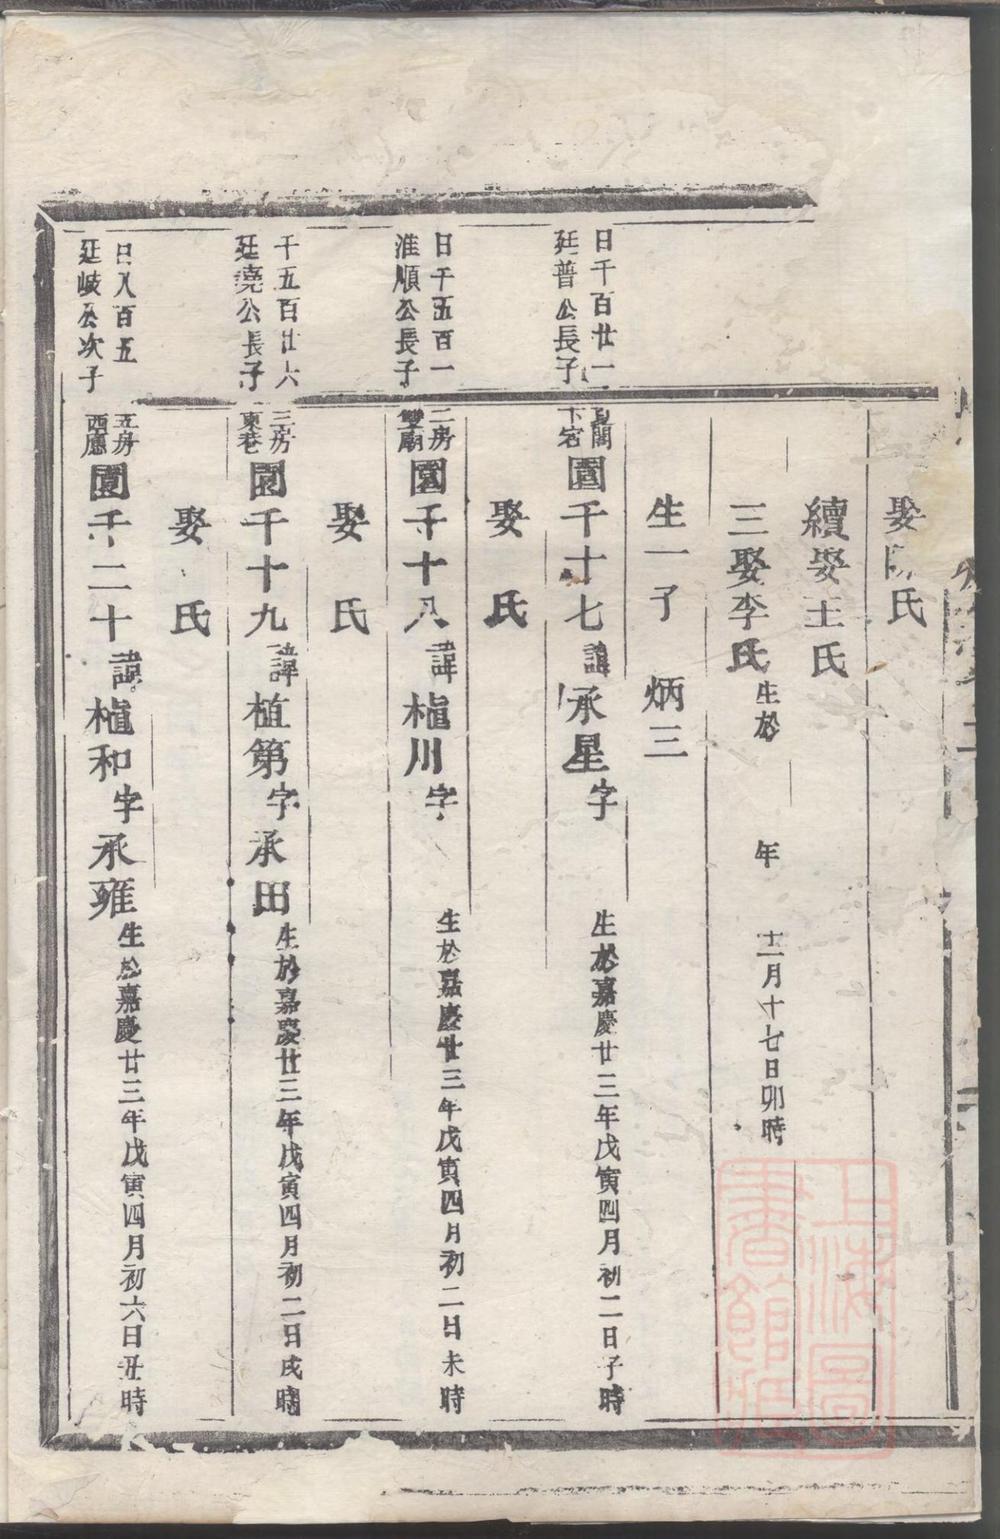 娶陳氏
續娶王氏
三娶李氏生於 年 十二月十七日卯時
生一子 炳三
日千百廿一
廷普公長子
下宅
園千十七諱承星字 生於嘉慶廿三年戊寅四月初二日子時
娶 氏
日千五百一
淮順公長子
二房
雙廟
園千十八諱植川字 生於嘉慶廿三年戊寅四月初二日未時
娶 氏
千五百廿六
廷堯公長子
三房
東巷
園千十九諱植第字承田生於嘉慶廿三年戊寅四月初二日戌時
娶 氏
日八百五
廷岐公次子
五房
西應
園千二十諱植和字承雍生於嘉慶廿三年戊寅四月初六日丑時
上海圖
書館藏